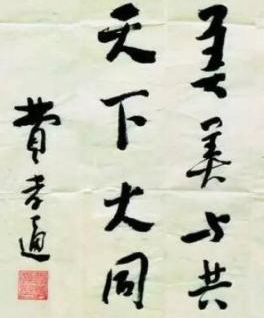 美美与共
天下大同
費孝通